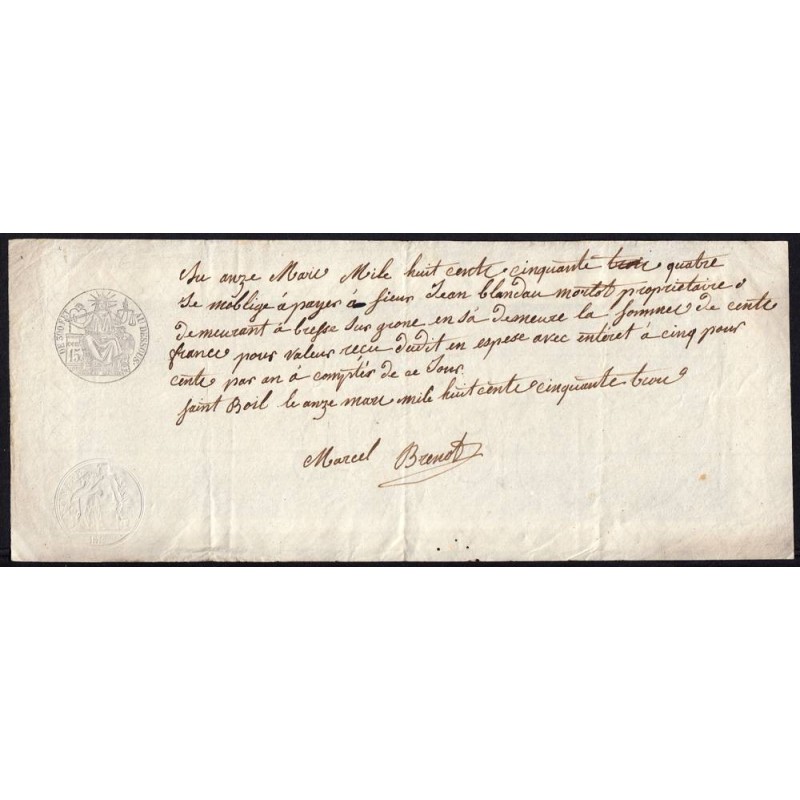 Au anze Mars Mile huit cente cinquante trois quatre
Je m'oblige à payer à sieur Jean Blandau mortot propriétaire
demeurant à bresse sur grone en sa demeure la sommer de cente
france pour valeur reçu dudit en espese avec entéret à cinq pour
cente par an à comptés de ce Jour.
saint Boil le anze mars mile huit cente cinquante trois
Marcel Brenot
DE 500 F ET AU DESSOUS
15